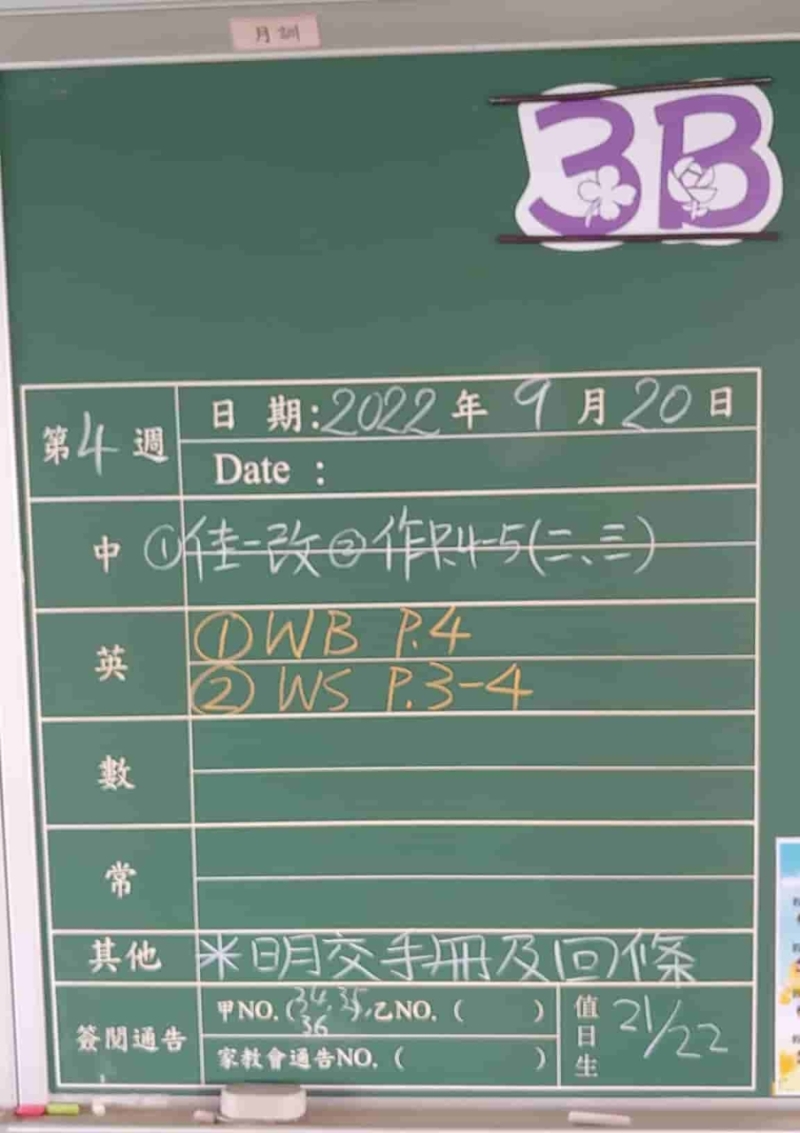 月訓
3B
第4週
日 期:2022年9月20日
Date :
中 ①佳-改②作P.4-5(二、三)
英
①WB P.4
②WS P.3-4
數
常
其他 *明交手冊及回條
簽閱通告
甲NO.(34,35,36),乙NO.( )
家教會通告NO.( )
值日生 21/22